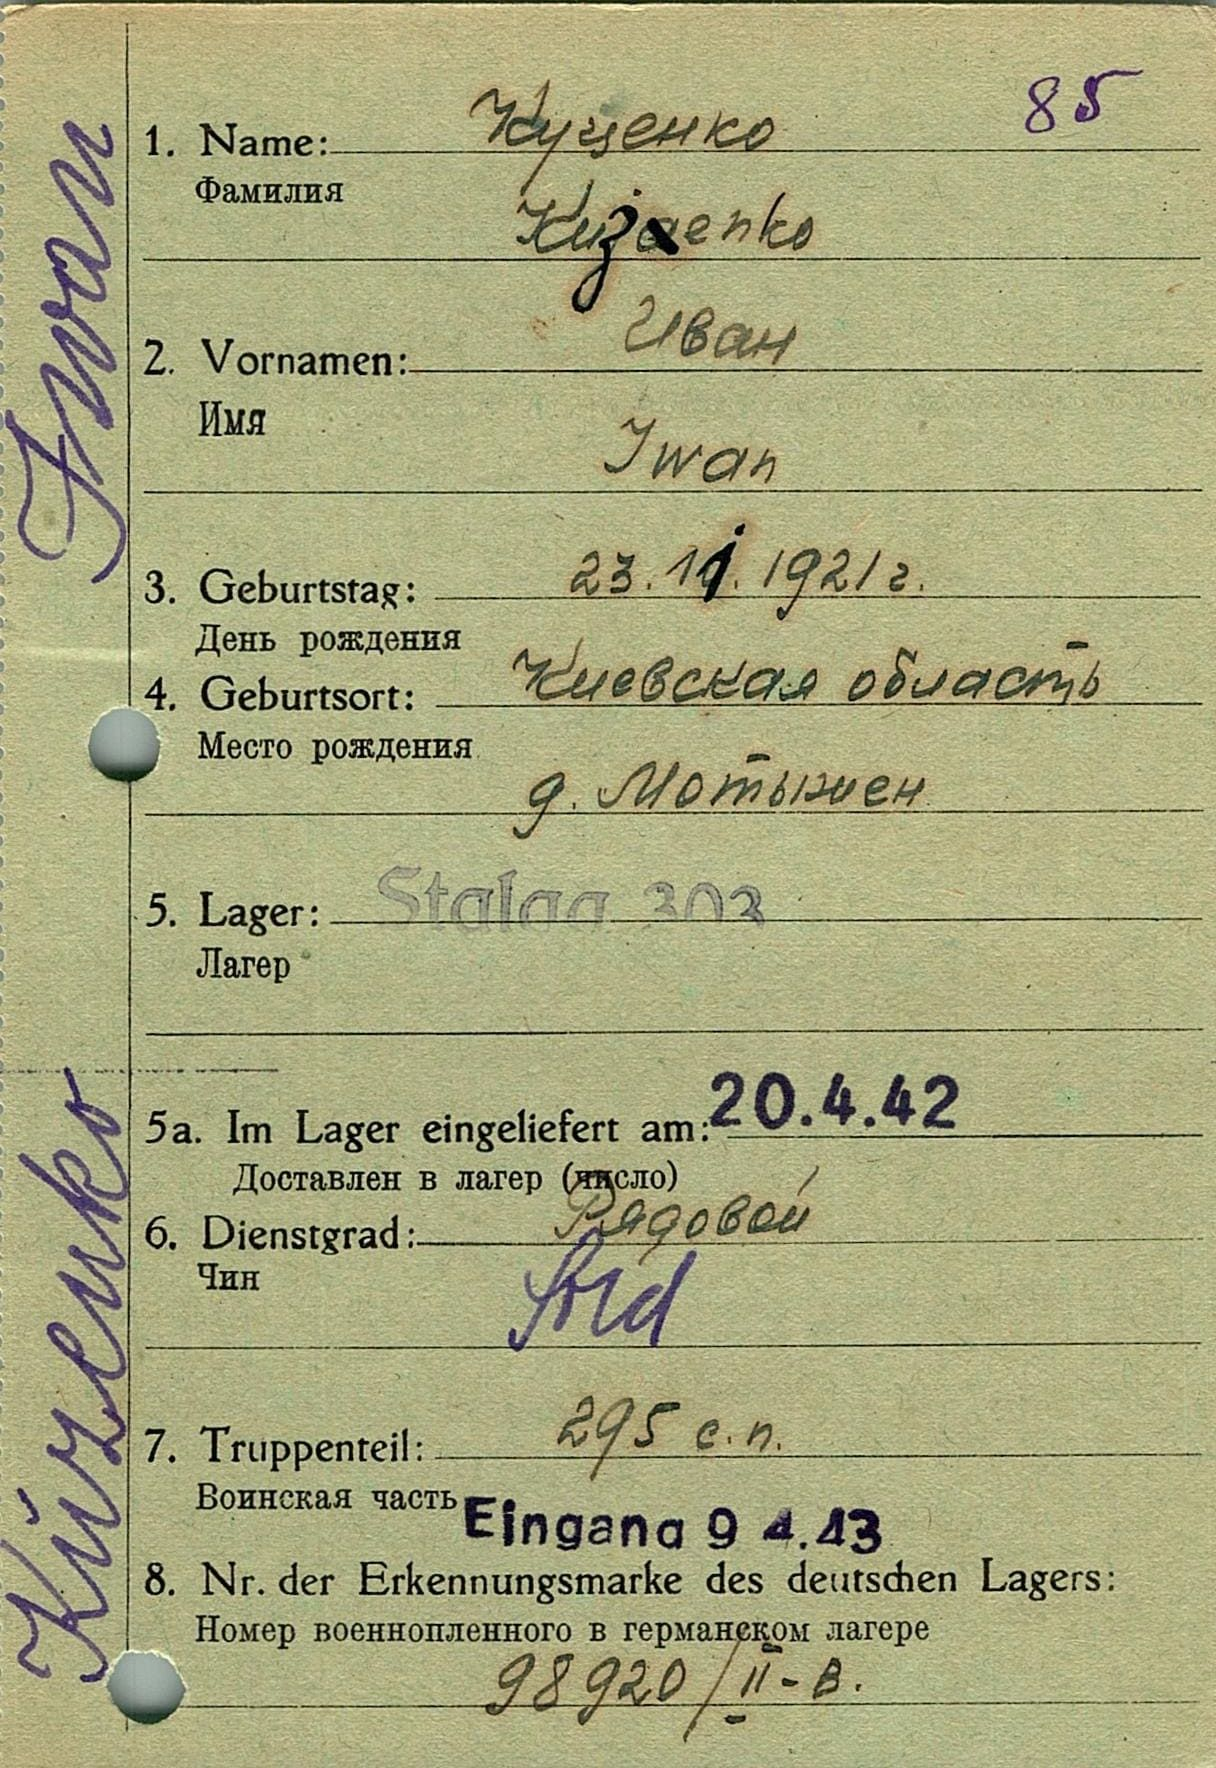 85
1. Name: Куценко
Фамилия
Kuzenko
2. Vornamen: Иван
Имя
Iwan
3. Geburtstag: 23.11.1921 г.
День рождения
4. Geburtsort: Киевская область
Место рождения
д. Мотыжен
5. Lager: Stalag 303
Лагерь
5a. Im Lager eingeliefert am: 20.4.42
Доставлен в лагерь (число)
6. Dienstgrad: Рядовой
Чин
Sold
7. Truppenteil: 295 с.п.
Воинская часть
Eingang 9 4.43
8. Nr. der Erkennungsmarke des deutschen Lagers:
Номер военнопленного в германском лагере
98920/II-B.
Kuzenko Iwan